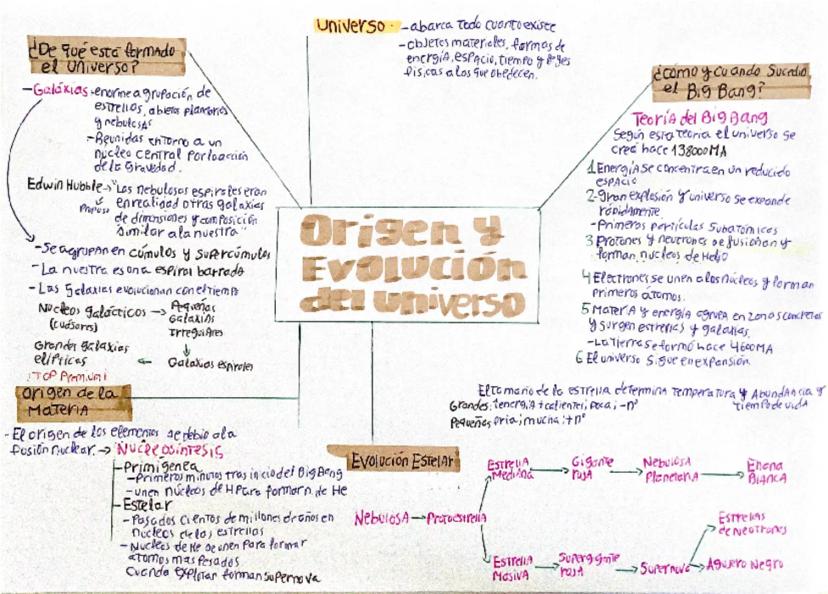 Universo - abarca todo cuanto existe
- objetos materiales, formas de
energía, espacio, tiempo y leyes
físicas a los que obedecen.
¿De qué está formado
el Universo?
- Galaxias - enorme agrupación de
estrellas, objetos planetarios
y nebulosas
- Reunidas entorno a un
nucleo central por la acción
de la Gravedad.
Edwin Hubble → "Las nebulosas espirales eran
Propuso en realidad otras galaxias
de dimensiones y composición
similar a la nuestra"
- Se agrupan en cúmulos y supercúmulos
- La nuestra es una espiral barrada
- Las Galaxias evolucionan con el tiempo
Nucleos galácticos → Pequeñas
(cuásares) galaxias
Irregulares
Grandes galaxias
elípticas ← Galaxias espirales
¡TOP Premium!
Origen y
Evolución
del universo
¿Cómo y cuando Sucedio
el Big Bang?
Teoría del Big Bang
Según esta teoria el universo se
creó hace 13800 MA
1 Energía se concentra en un reducido
espacio
2- Gran explosión y universo se expande
rápidamente.
- Primeros partículas Subatómicas
3 Protones y neutrones se fusionan y
forman nucleos de Helio
4 Electrones se unen a los núcleos y forman
primeros átomos.
5 Materia y energía agrupa en zonas concretas
y surgen estrellas y galaxias.
- La Tierra se formó hace 4600 MA
6 El universo sigue en expansión
Origen de la
Materia
- El origen de los elementos se debio a la
fusión nuclear. → Nucleosíntesis
- Primigenea
- Primeros minutos tras inicio del Big Bang
- unen núcleos de H Para formar n. de He
- Estelar
- Pasados cientos de millones de años en
nucleos de las estrellas
- Nucleos de He se unen para formar
atomos mas pesados
Cuando explotan forman Supernova
El tamaño de la estrella determina Temperatura y Abundancia y
tiempo de vida
Grandes: + energía + caliente; poca; - nº
Pequeñas fria; mucha; + nº
Evolución Estelar
Nebulosa → Protoestrella
Estrella
Mediana → Gigante
roja → Nebulosa
Planetaria → Enana
Blanca
Estrella
Masiva → Supergigante
roja → Supernova
Estrellas
de Neutrones
Agujero Negro